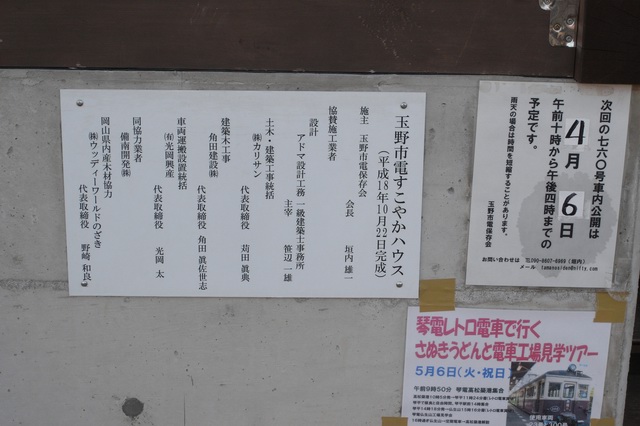 玉野市電すこやかハウス
(平成18年10月22日完成)
施主 玉野市電保存会 会長 垣内 雄一
協賛施工業者
設計
アドマ設計工務 一級建築士事務所
主宰 笹辺 一雄
土木・建築工事統括
㈱カリサン 代表取締役 苅田 眞典
建築木工事
角田建設㈱ 代表取締役 角田 眞佐世志
車両運搬設置統括
㈲光岡興産 代表取締役 光岡 太
同協力業者
備南開発㈱
岡山県内産木材協力
㈱ウッディーワールドのざき 代表取締役 野崎 和良
次回の七六〇号車内公開は
4月6日
午前十時から午後四時までの
予定です。
雨天の場合は時間を短縮することがあります。
玉野市電保存会
お問い合わせは
(垣内)
メール
琴電レトロ電車で行く
さぬきうどんと電車工場見学ツアー
5月6日(火・祝日)
午前9時50分 琴電高松築港集合
使用車両